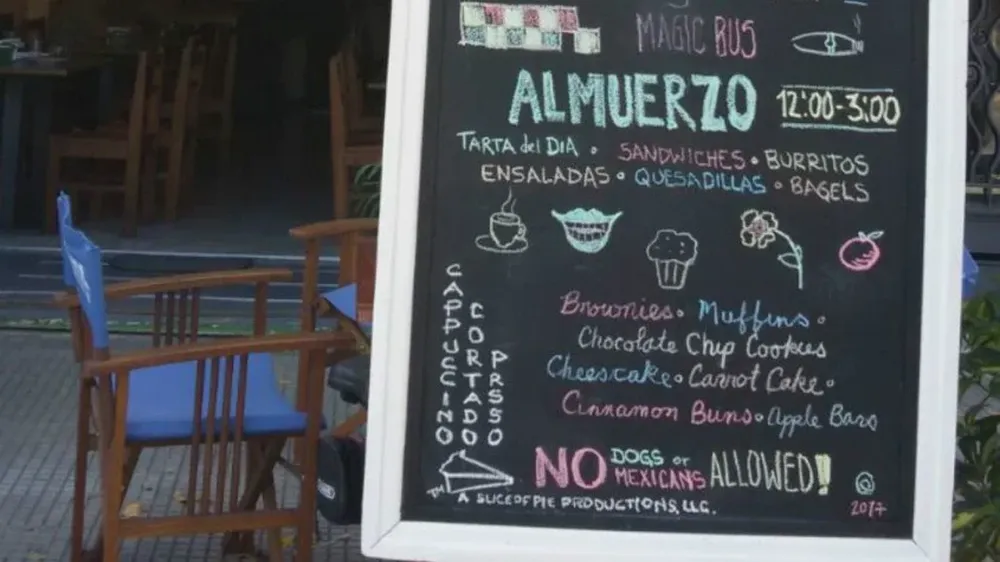 MAGIC BUS
ALMUERZO 12:00-3:00
TARTA del DIA • SANDWICHES • BURRITOS
ENSALADAS • QUESADILLAS • BAGELS
CAPPUCCINO
CORTADO
PRSSO
Brownies • Muffins •
Chocolate Chip Cookies
Cheescake • Carrot Cake •
Cinnamon Buns • Apple Bars
NO DOGS or MEXICANS ALLOWED!
TM A SLICE OF PIE PRODUCTIONS, LLC.
2017